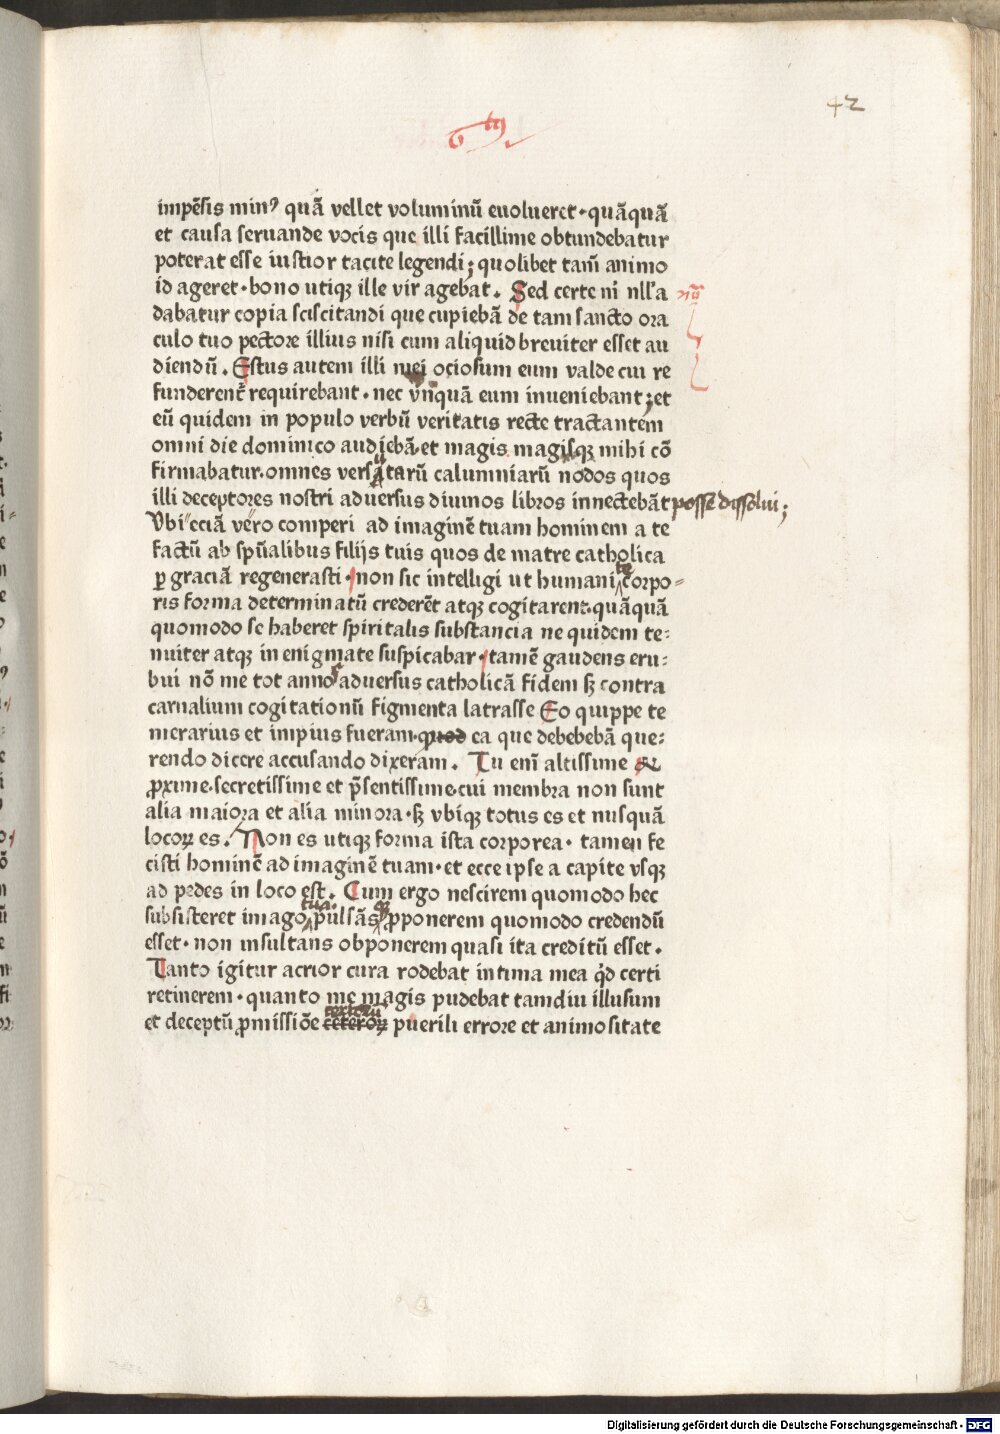 42
6tus
impēsis minꝰ quã vellet voluminū euolueret·quãquã
et causa seruande vocis que illi facillime obtundebatur
poterat esse iustior tacite legendi; quolibet tam̄ animo
id ageret·bono utiqꝫ ille vir agebat. Sed certe ni nll'a
dabatur copia sciscitandi que cupiebã de tam sancto ora
culo tuo pectore illius nisi cum aliquid breuiter esset au
diendū. Estus autem illi mei ociosum eum valde cui re
funderent᷑ requirebant·nec vnquã eum inueniebant; et
eū quidem in populo verbū veritatis recte tractantem
omni die dominico audiebã·et magis magisqꝫ mihi cō
firmabatur·omnes versutarū calumniarū nodos quos
illi deceptores nostri aduersus diuinos libros innectebãt posse dissolui;
Vbi ecciã vero comperi ad imaginē tuam hominem a te
factū ab spūalibus filijs tuis quos de matre catholica
ꝑ graciã regenerasti·non sic intelligi ut humani te corpo-
ris forma determinatū crederēt atqꝫ cogitarent·quãquã
quomodo se haberet spiritalis substancia ne quidem te-
nuiter atqꝫ in enigmate suspicabar·tamē gaudens eru-
bui nō me tot annos aduersus catholicã fidem sꝫ contra
carnalium cogitationū figmenta latrasse Eo quippe te
merarius et impius fueram·quod ea que debebebã que-
rendo dicere accusando dixeram. Tu enī altissime &
ꝓxime·secretissime et p̄sentissime·cui membra non sunt
alia maiora et alia minora·sꝫ vbiqꝫ totus es et nusquã
locoꝝ es. Non es utiqꝫ forma ista corporea·tamen fe
cisti hominē ad imaginē tuam·et ecce ipse a capite vsqꝫ
ad pedes in loco est. Cum ergo nescirem quomodo hec
subsisteret imago tua·pulsãs qꝫ ꝓponerem quomodo credendū
esset·non insultans obponerem quasi ita creditū esset.
Tanto igitur acrior cura rodebat intima mea q̄d certi
retinerem·quanto me magis pudebat tamdiu illusum
et deceptū ꝓmissiōe certorū ceteroꝝ puerili errore et animositate
Digitalisierung gefördert durch die Deutsche Forschungsgemeinschaft - DFG